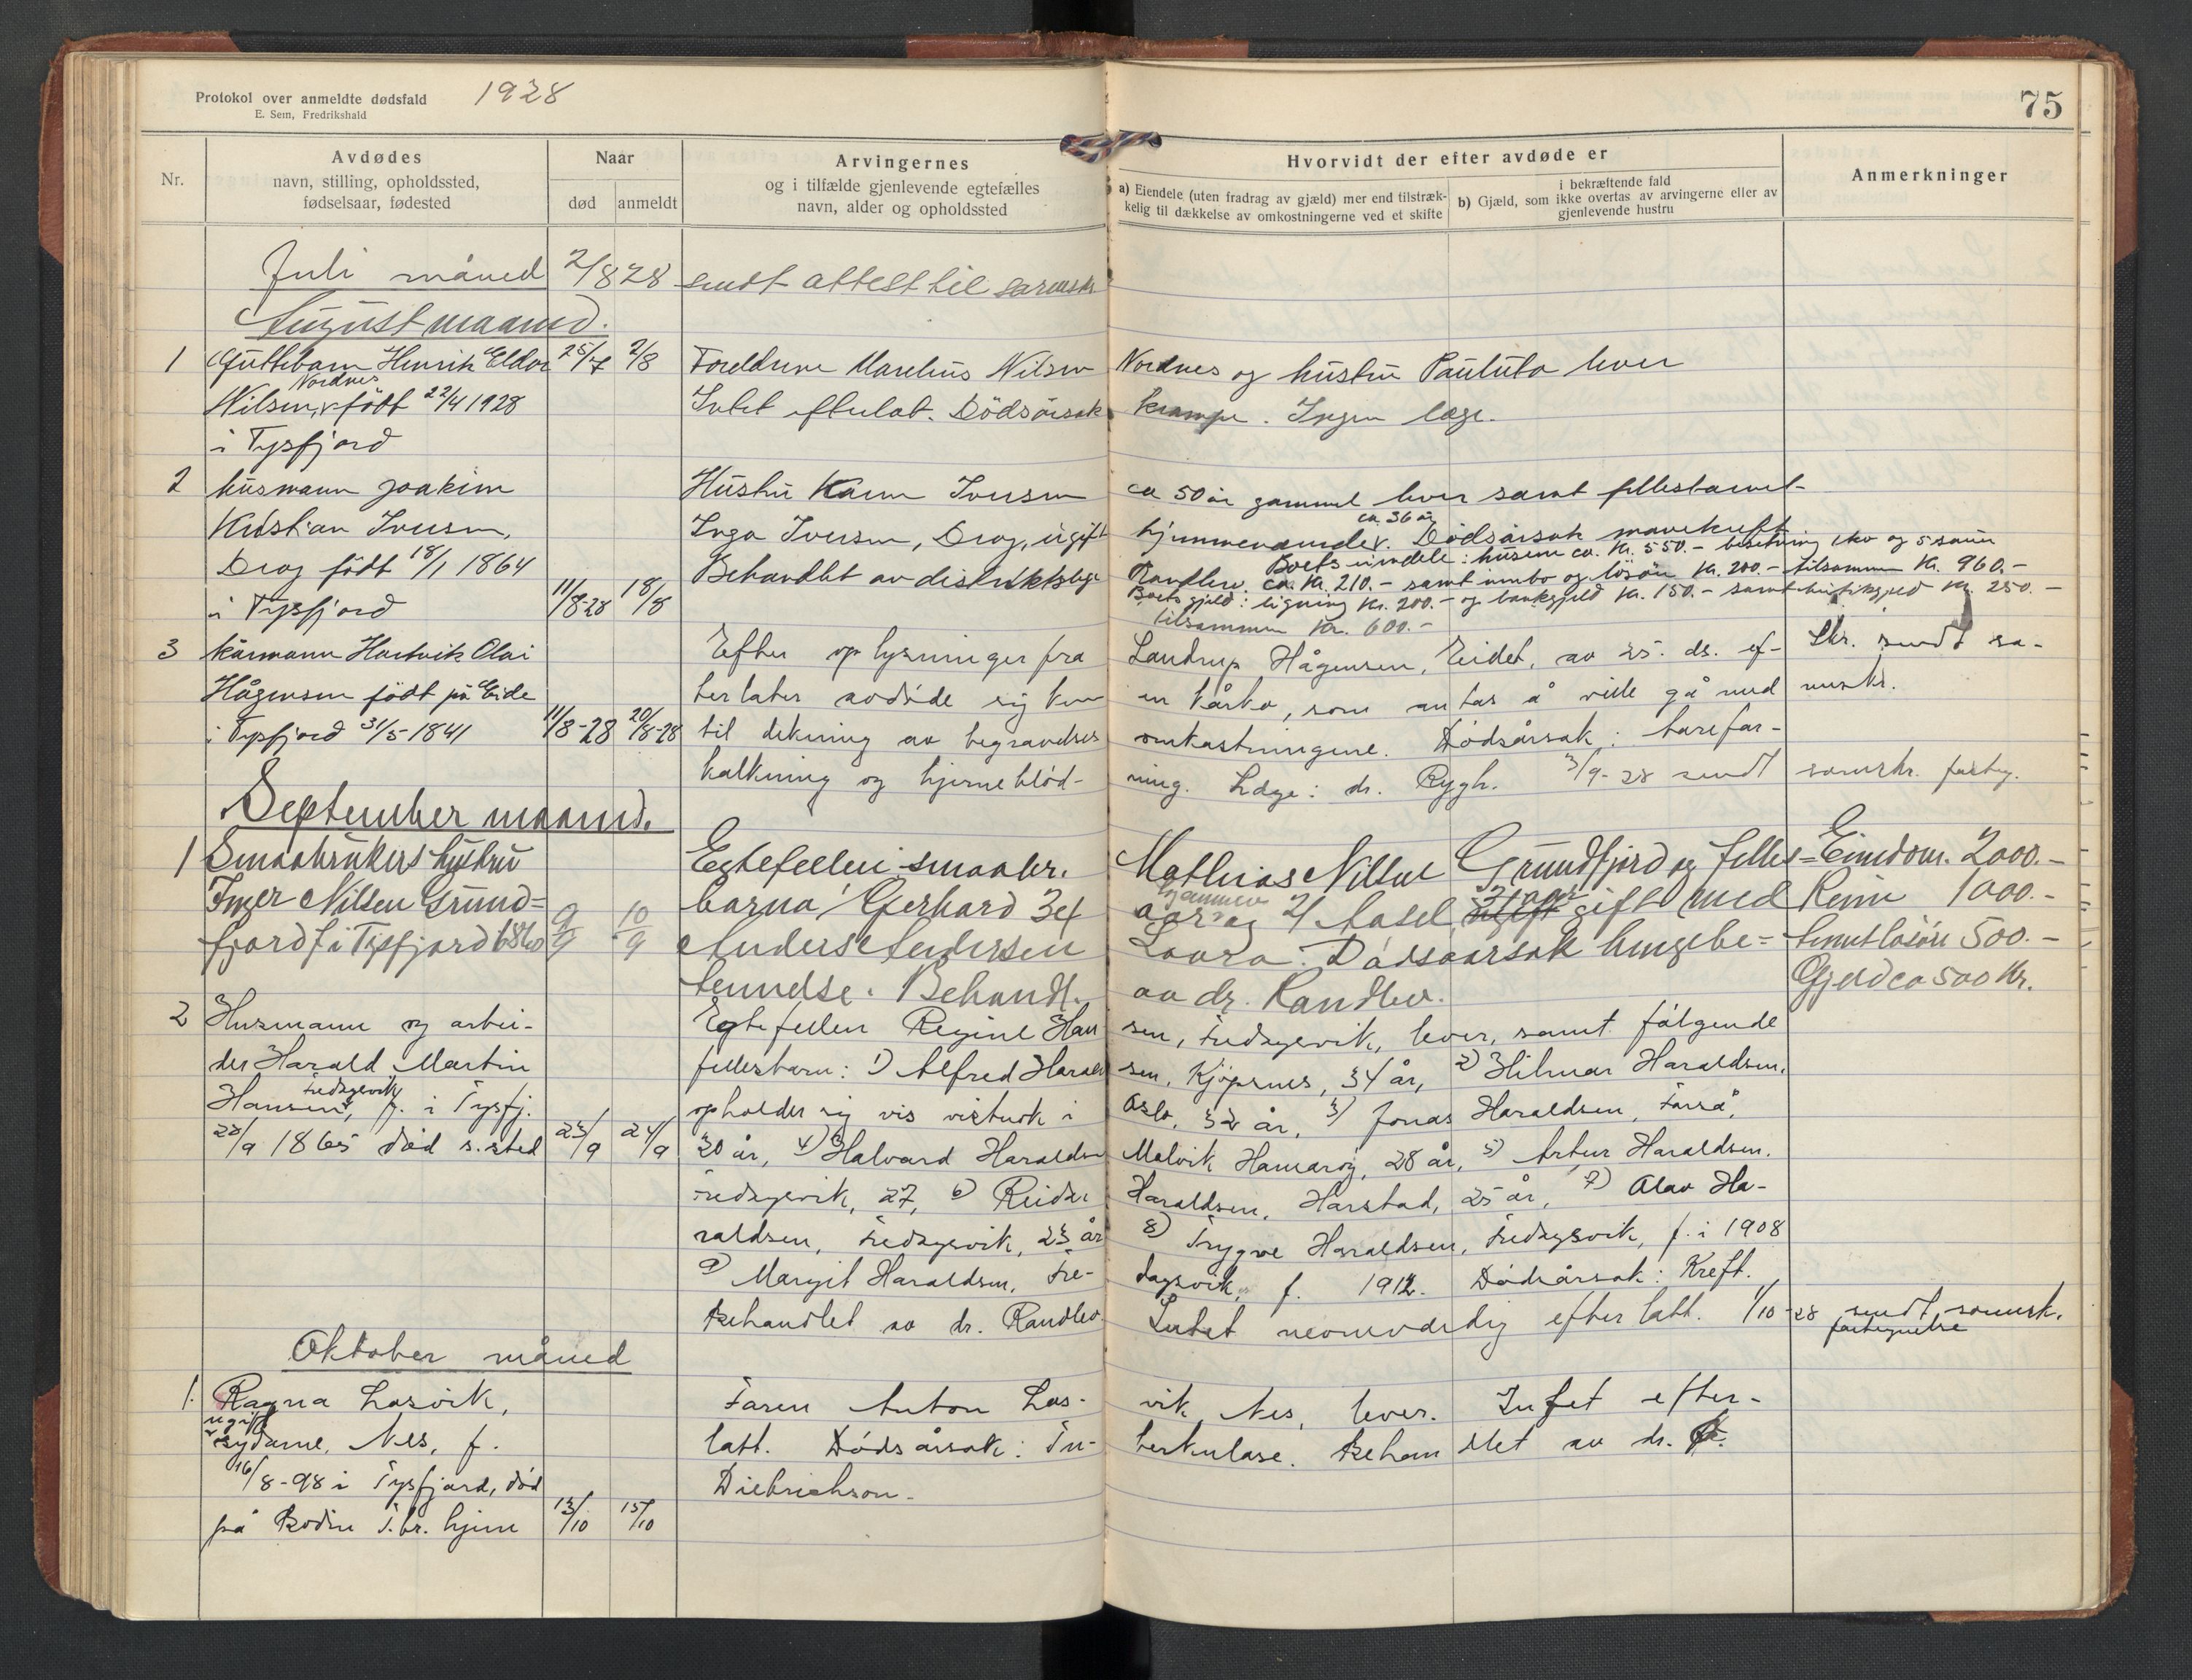 Protokol over anmeldte dødsfald 1928
E. Sem, Fredrikshald
75
Nr.
Avdødes
navn, stilling, opholdssted,
fødselsaar, fødested
Naar
død anmeldt
Arvingernes
og i tilfælde gjenlevende egtefælles
navn, alder og opholdssted
Hvorvidt der efter avdøde er
a) Eiendele (uten fradrag av gjæld) mer end tilstræk-
kelig til dækkelse av omkostningerne ved et skifte
i bekræftende fald
b) Gjæld, som ikke overtas av arvingerne eller av
gjenlevende hustru
Anmerkninger
Juli måned 2/8 28 sendt attest til sorenskr.
August maaned.
1 Guttebarn Henrik Eldor 25/7 2/8 Foreldrene Marelius Nilsen Nordnes og hustru Paulula lever
Nordnes
Nilsen, født 22/4 1928 Intet efterlat. Dödsårsak krampe. Ingen læge.
i Tysfjord
2 husmann Joakim Hustru Karen Iversen ca 50 år gammel lever samt fellesbarnet
Kristian Iversen, Inga Iversen, Drag, ugift ca. 36 år hjemmeværende. Dödsårsak mavekreft
Drag födt 18/1 1864 Behandlet av distriktslæge Randlev.
Boets eiendele: husene ca. kr. 550.- besetning 1 ko og 5 sauer
ca. kr. 210.- samt innbo og lösöre kr. 200.- tilsammen kr. 960.-
i Tysfjord 11/8-28 18/8 Boets gjeld: ligning kr. 200.- og bankgjeld kr. 150.- samt butikgjeld kr. 250.-
tilsammen kr. 600.-
3 kårmann Hartvik Olai Efter oplysninger fra Landrup Hågensen, Eidet, av 25. ds. ef- Skr. sendt so-
Hågensen födt på Eide terlater avdöde sig kun en kårko, som antas å ville gå med renskr.
i Tysfjord 31/5-1841 11/8-28 20/8-28 til dekning av begravelses omkostningene. Dödsårsak: årefor-
kalkning og hjerneblöd- ning. Læge: dr. Rygh. 3/9-28 sendt sorenskr. forteg.
September maaned.
1 Smaabrukers hustru Egtefellen smaabr. Mathias Nilsen Grundfjord og felles= Eiendom. 2000.-
Inger Nilsen Grund= barna Gerhard 34 aar og 2/ Aasel gift med Reine 1000.-
fjord f i Tysfjord 1860 9/9 10/9 Anders Andersen Laara. Dødsaarsak lungebe= samt løsøre 500.-
tennelse. Behandl. av dr. Randlev. Gjeld ca 500 Kr.
2 Husmann og arbei- Egtefellen Regine Han sen, Fredagsvik, lever, samt følgende
der Harald Martin fellesbarn: 1) Alfred Harald sen, Kjøpsnes, 34 år, 2) Hilmar Haraldsen,
Fredagsvik
Hansen, f. i Tysfj. opholder sig vis vistnok i Oslo, 32 år, 3) Jonas Haraldsen, Forså,
28/9 1865 død s. sted 23/9 24/9 30 år, 4) Halvard Haraldsen Malvik Hamarøy, 28 år, 5) Artur Haraldsen.
Fredagsvik, 27, 6) Reidar Haraldsen, Harstad, 25 år, 7) Olav Ha-
raldsen, Fredagsvik, 23 år 8) Trygve Haraldsen, Fredagsvik, f. i 1908
9) Margit Haraldsen, Fre- dagsvik, f. 1912. Dødsårsak: Kreft.
Behandlet av dr. Randlev. Intet nevneverdig efterlatt. 1/10-28 sendt sorensk.
fortegnelse
Oktober måned
1. Ragna Losvik, Faren Anton Los- vik, Nes, lever. Intet efter-
ugift
sydame, Nes, f. latt. Dødsårsak: Tu- berkulose. Behandlet av dr.
16/8-98 i Tysfjord, død Dietrichson.
på Bodin T.br. hjem 13/10 15/10